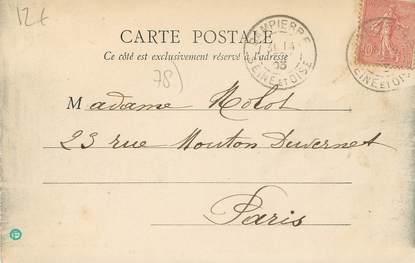 12 €
CARTE POSTALE
Ce côté est exclusivement réservé à l'adresse
78)
MPIERRE
14
05
SEINE ET OISE
SEINE ET OISE
10
Madame Molot
23 rue Mouton Duvernet
Paris